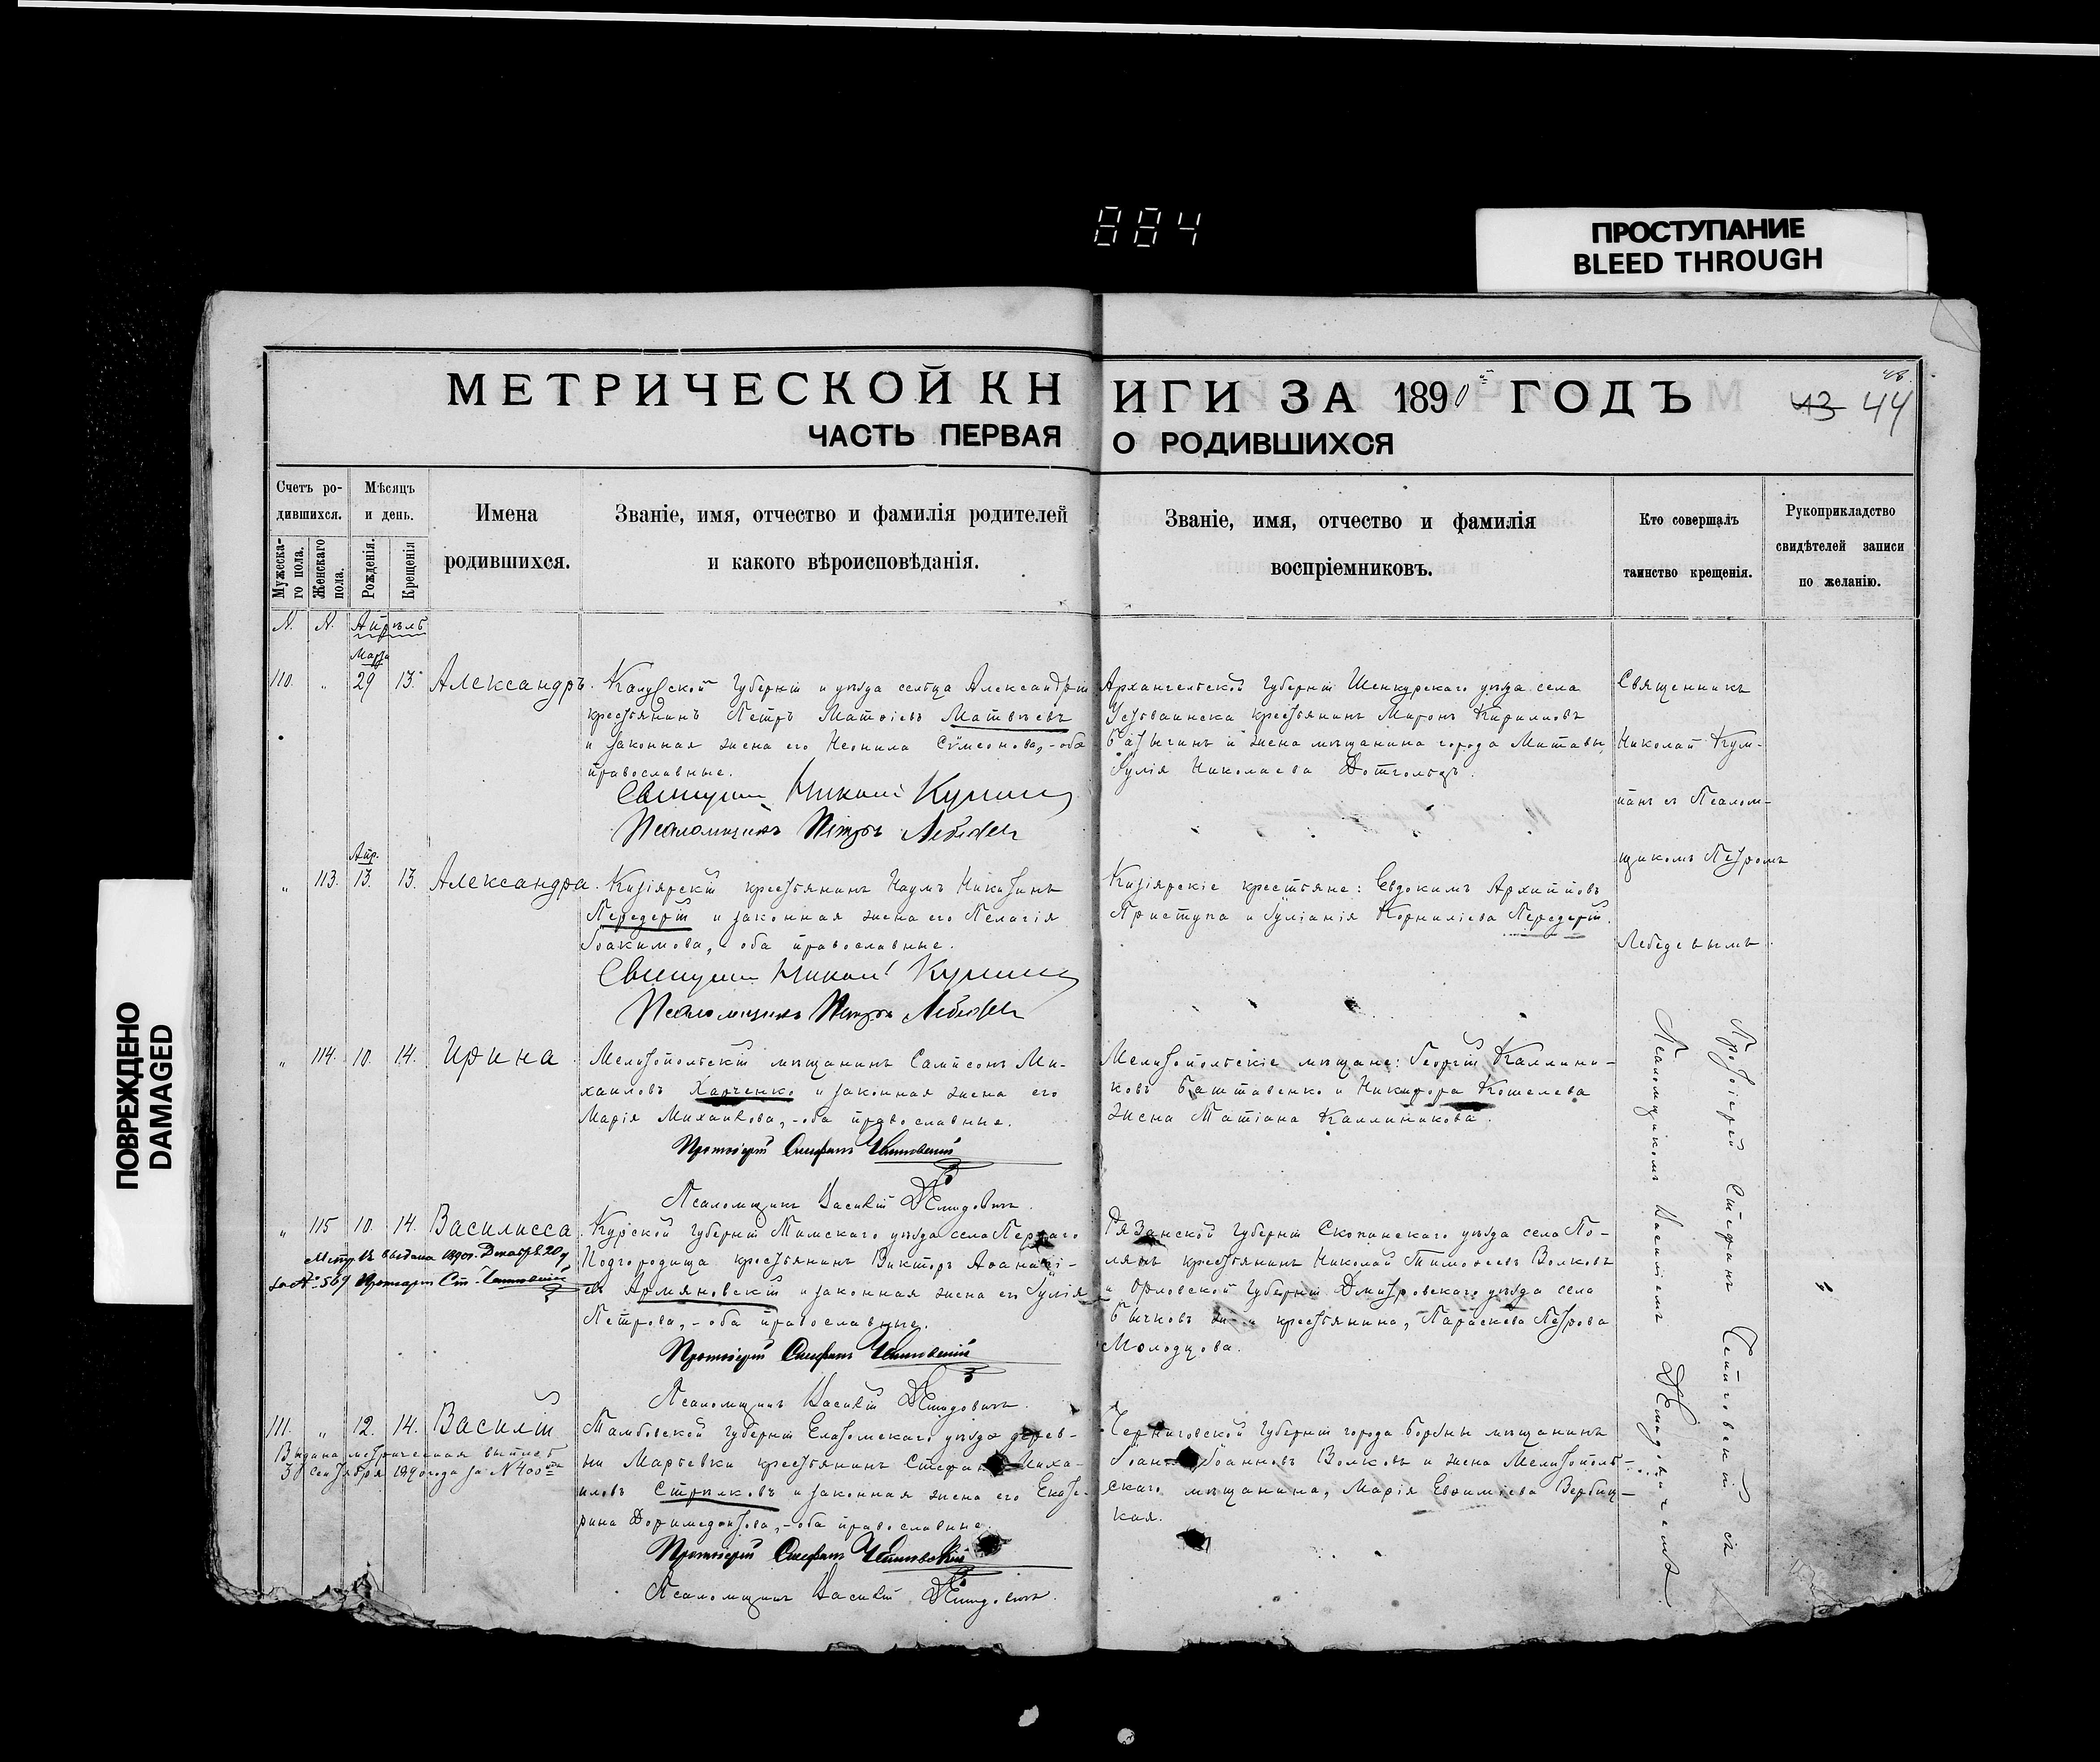 884
ПРОСТУПАНИЕ
BLEED THROUGH
ПОВРЕЖДЕНО
DAMAGED
МЕТРИЧЕСКОЙ КНИГИ ЗА 1890й ГОДЪ
43 44
ЧАСТЬ ПЕРВАЯ О РОДИВШИХСЯ
Счетъ ро-
дившихся.
Мужеска-
го пола.
Женскаго
пола.
Мѣсяцъ
и день.
Рожденія.
Крещенія
Имена
родившихся.
Званіе, имя, отчество и фамилія родителей
и какого вѣроисповѣданія.
Званіе, имя, отчество и фамилія
воспріемниковъ.
Кто совершалъ
таинство крещенія.
Рукоприкладство
свидѣтелей записи
по желанію.
Апрѣль
Марта
110. „ 29 13. Александръ.
Калужской губерніи и уѣзда сельца
крестьянинъ Петръ Матѳіевъ Матвѣевъ
и законная жена его Неонила Сѵмеонова, - оба
православные.
Священникъ Николай
Псаломщикъ Петръ Лебедевъ
Архангельской губерніи Шенкурскаго уѣзда села
крестьянинъ Миронъ Кирилловъ
и жена мѣщанина города Митавы,
Іулія Николаева
Священникъ
Николай Кум-
панъ съ Псалом-
щикомъ Петромъ
Лебедевымъ.
Апр.
„ 113. 13. 13. Александра.
Кизіярскій крестьянинъ Наумъ Никитинъ
Передерій и законная жена его Пелагія
Іоакимова, - оба православные.
Священникъ Николай
Псаломщикъ Петръ Лебедевъ
Кизіярскіе крестьяне: Евдокимъ Архипповъ
Приступа и Іуліанія Корниліева Передерій.
„ 114. 10. 14. Ирина.
Мелитопольскій мѣщанинъ Сампсонъ Ми-
хаиловъ Харченко и законная жена его
Марія Михаилова, - оба православные.
Протоіерей Стефанъ
Псаломщикъ Василій Демидовичъ.
Мелитопольскіе мѣщане: Георгій Каллини-
ковъ Баштавенко и Никифора Кошелева
жена Татіана Каллиникова.
Протоіерей Стефанъ съ
Псаломщикомъ Василіемъ Демидовичемъ.
„ 115 10. 14. Василисса.
выдана 1890г. Декабря 20 д
за № 569 Протоіерей Ст.
Курской губерніи Тимскаго уѣзда села Перваго
Подгородища крестьянинъ Викторъ Аѳанасі-
евъ Армяновскій и законная жена его Іулія
Петрова, - оба православные.
Протоіерей Стефанъ
Псаломщикъ Василій Демидовичъ.
Рязанской губерніи Скопинскаго уѣзда села По-
лянъ крестьянинъ Николай Тимоѳеевъ Волковъ
и Орловской губерніи Дмитровскаго уѣзда села
крестьянина, Параскева Петрова
Молодцова.
111. „ 12. 14. Василій
Выдана метрическая выпись
Сентября 1890 года за № 400
Тамбовской губерніи Елатомскаго уѣзда дерев-
ни Марьевки крестьянинъ Стефанъ Миха-
иловъ Стрѣлковъ и законная жена его Екате-
рина Доримедонтова, - оба православные.
Протоіерей Стефанъ
Псаломщикъ Василій Демидовичъ.
Черниговской губерніи города Борзны мѣщанинъ
Іоаннъ Іоанновъ Волковъ и жена Мелитополь-
скаго мѣщанина, Марія Евѳиміева Вербиц-
кая.